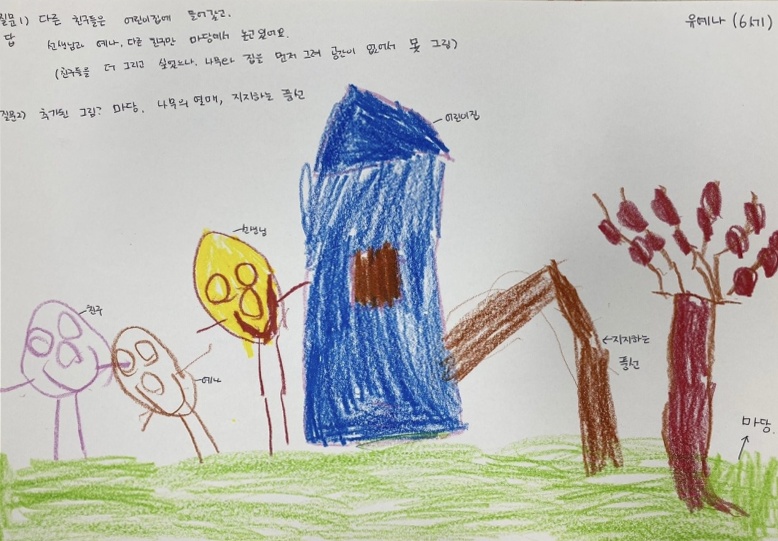 질문1) 다른 친구들은 어린이집에 들어갔고,
답 선생님과 예나, 다른 친구만 마당에서 놀고있어요.
(친구들을 더 그리고 싶었으나, 나무와 집을 먼저 그려 공간이 없어서 못 그림)
질문2) 추가된 그림? 마당, 나무의 열매, 지지하는 풍선
유예나 (6세)
어린이집
선생님
친구
예나
지지하는
풍선
마당.